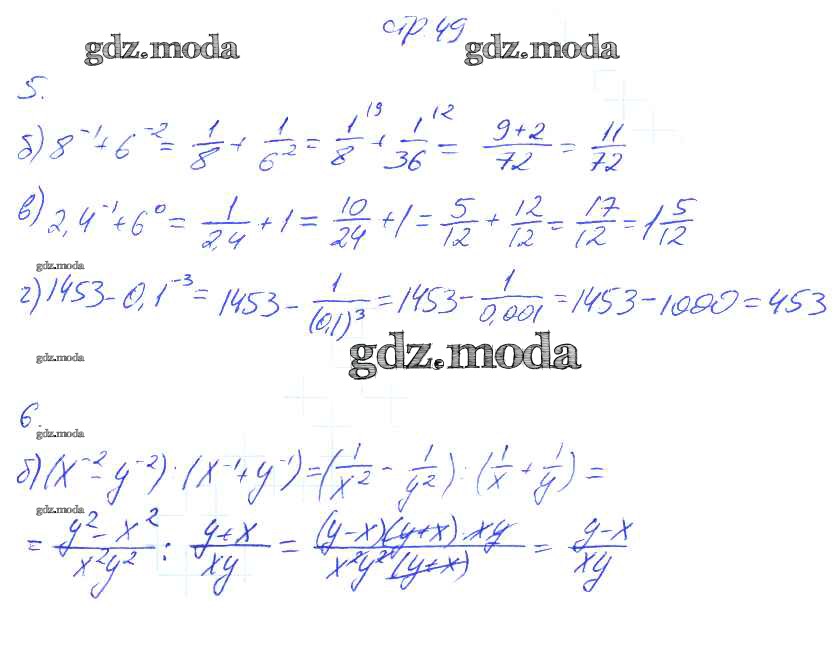 стр. 49
gdz.moda gdz.moda
5.
б) 8⁻¹ + 6⁻² = 1/8 + 1/6² = 1/8 |9 + 1/36 |2 = (9+2)/72 = 11/72
в) 2,4⁻¹ + 6⁰ = 1/2,4 + 1 = 10/24 + 1 = 5/12 + 12/12 = 17/12 = 1 5/12
gdz.moda
г) 1453 - 0,1⁻³ = 1453 - 1/(0,1)³ = 1453 - 1/0,001 = 1453 - 1000 = 453
gdz.moda gdz.moda
6.
gdz.moda
б) (x⁻² - y⁻²) : (x⁻¹ + y⁻¹) = (1/x² - 1/y²) : (1/x + 1/y) =
gdz.moda
= (y² - x²)/x²y² : (y+x)/xy = (y-x)(y+x)·xy/x²y²(y+x) = (y-x)/xy